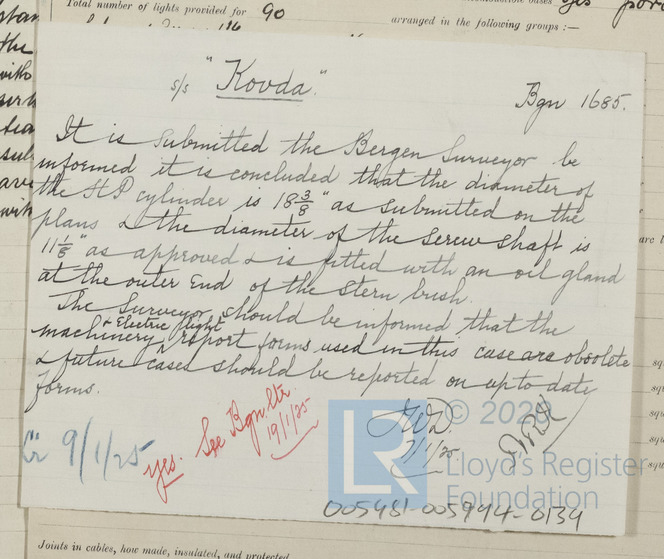 Total number of lights provided for 90
arranged in the following groups :—
s/s "Kovda"
Bgn 1685.
It is submitted the Bergen Surveyor be
informed it is concluded that the diameter of
the H P cylinder is 18 3/8" as submitted on the
plans & the diameter of the screw shaft is
11 1/8" as approved & is fitted with an oil gland
at the outer end of the stern bush.
The Surveyor should be informed that the
machinery & Electric flight report forms used in this case are obsolete
& future cases should be reported on up to date
forms.
yes. See Bgn ltr
19/1/25
9/1/25
7/1/25
© 2020
LR
Lloyd's Register
Foundation
005481-005994-0134
Joints in cables, how made, insulated, and protected